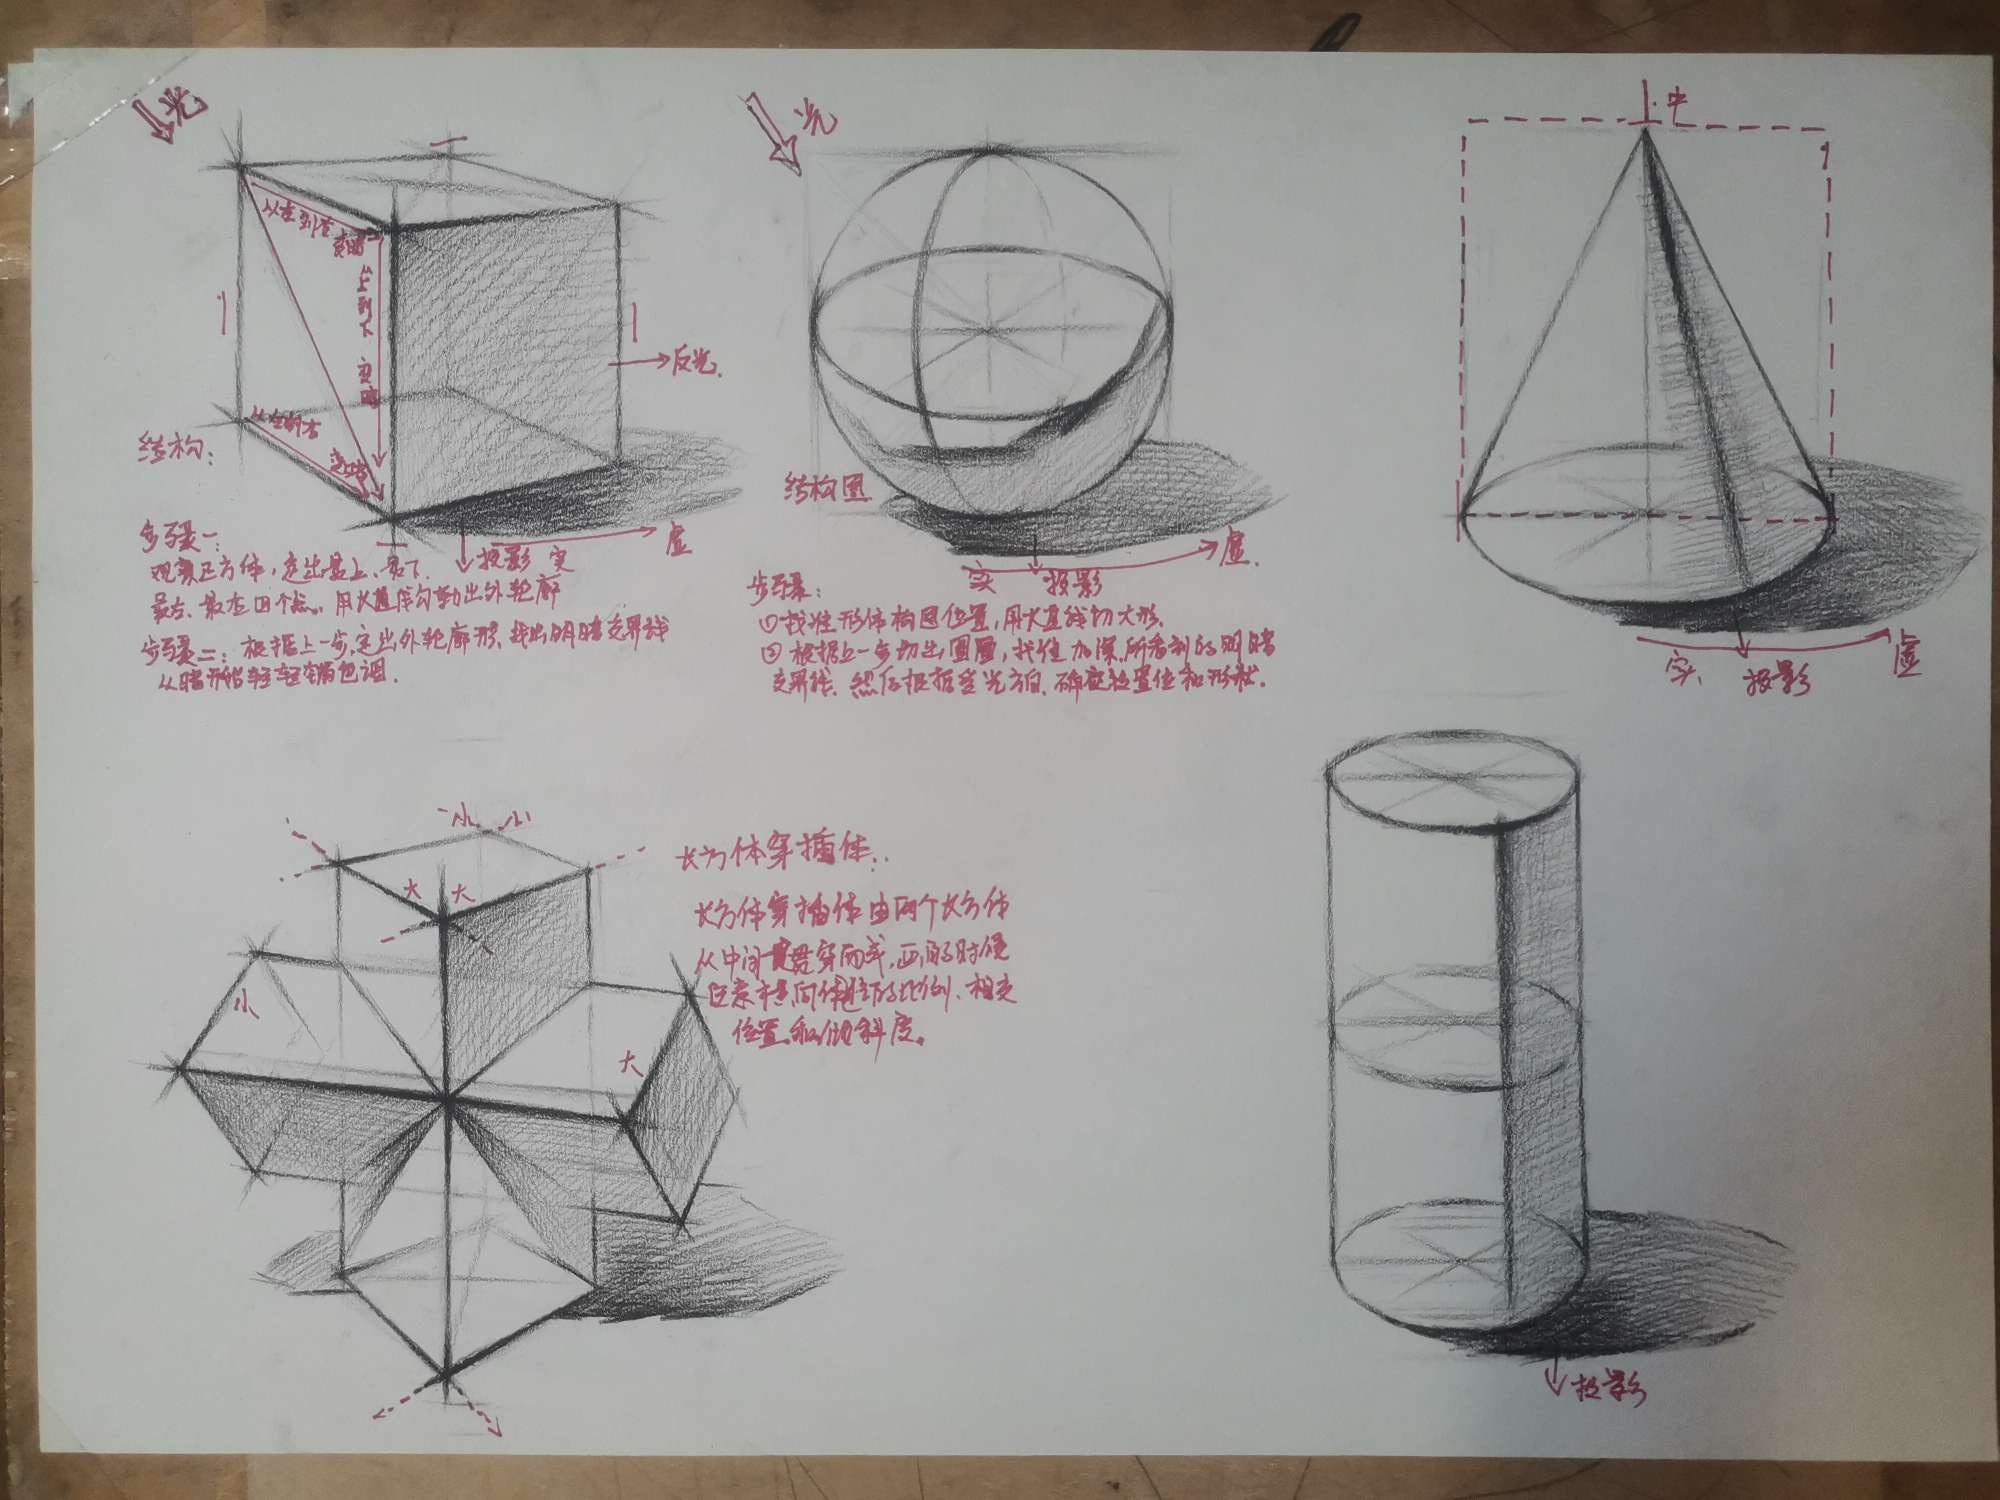 光
从左到右
变暗
从上到下 变暗
反光
从左到右
变暗
结构:
投影 实
虚
步骤一:
观察正方体,定出最上、最下
最左、最右四个点。用长直线勾勒出外轮廓
步骤二:根据上一步,定出外轮廓形、找出明暗交界线
从暗开始轻轻铺色调.
光
结构图
实 投影
虚.
步骤:
①找准形体构图位置,用长直线切大形.
②根据上一步切出圆圈,找准加深所看到的明暗
交界线.然后根据受光方向.确定位置和形状.
中
实、 投影
虚
小 小
大 大
小
大
长方体穿插体:
长方体穿插体由两个长方体
从中间贯穿而成,画的时候
位置和倾斜度。
投影